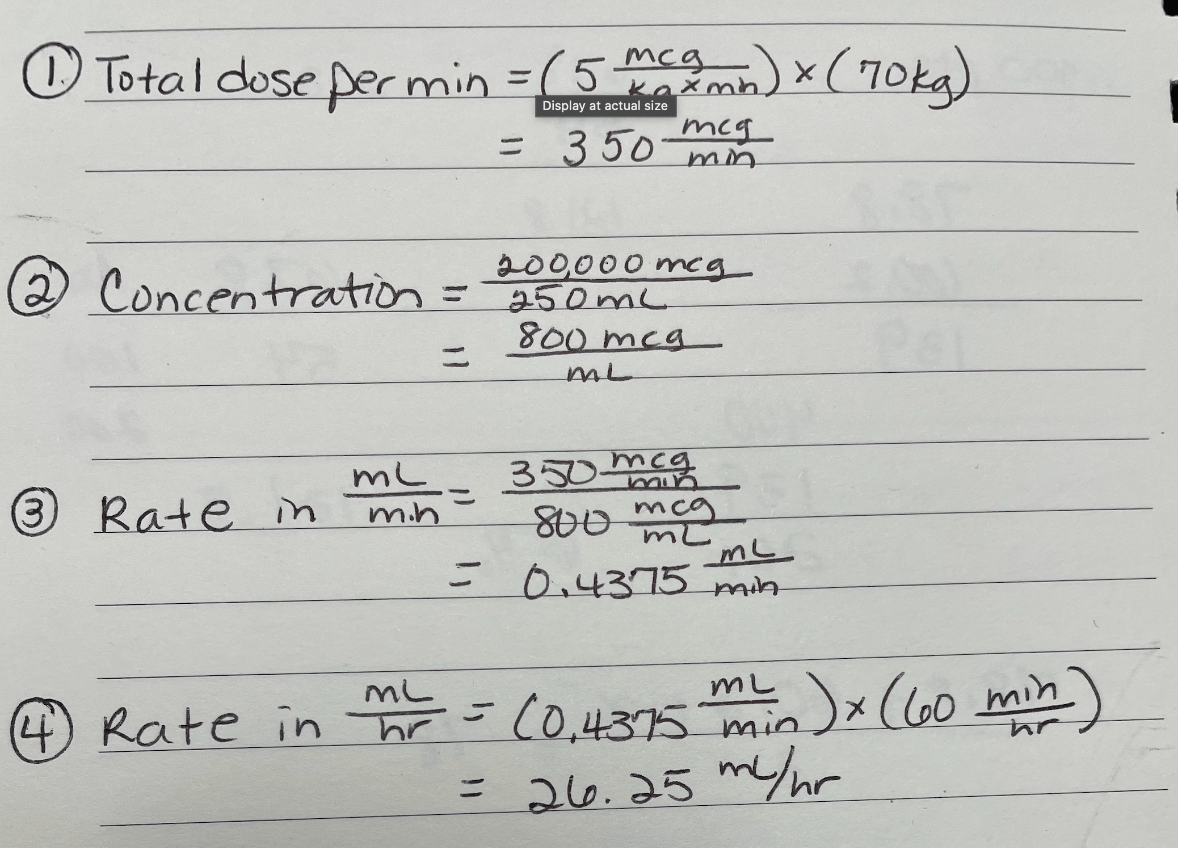 ① Total dose per min = (5 mcg/kg×min) × (70kg)
Display at actual size
= 350 mcg/min
② Concentration = 200,000 mcg/250mL
= 800 mcg/mL
③ Rate in mL/min = 350 mcg/min / 800 mcg/mL
= 0.4375 mL/min
④ Rate in mL/hr = (0.4375 mL/min) × (60 min/hr)
= 26.25 mL/hr